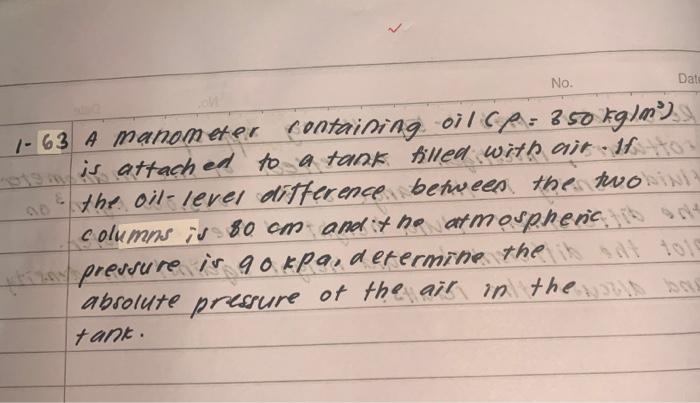 No.
Date
1-63 A manometer containing oil (ρ = 850 kg/m³)
is attached to a tank filled with air. If
the oil-level difference between the two
columns is 80 cm and the atmospheric
pressure is 90 kpa, determine the
absolute pressure of the air in the
tank.